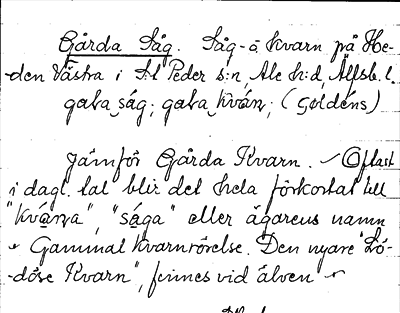 Gårda Såg. Såg- å kvarn på He-
-den Västra i S:t Peder s:n, Ale h:d, Älfsb. l.
gaƚa ság; gaƚa kván; (Goldéns)
Jämför Gårda Kvarn. ✓ Oftast
i dagl. tal blir det hela förkortat till
"kvána", "sága" eller ägarens namn
Gammal kvarnrörelse. Den nyare "Lö-
-döse Kvarn", finnes vid älven